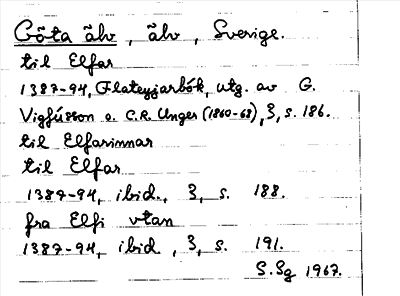 Göta älv, älv, Sverige.
til Elfar
1387-94, Flateyjarbók, utg. av G.
Vigfússon o. C.R. Unger (1860-68), 3, s. 186.
til Elfarinnar
til Elfar
1387-94, ibid., 3, s. 188.
fra Elfi vtan
1387-94, ibid, 3, s. 191.
S.Sg 1967.